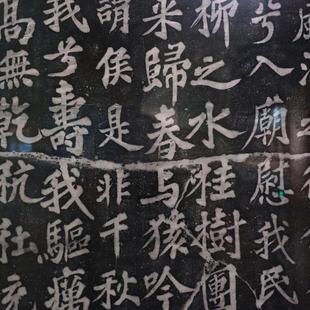 兮入廟慰我民
柳之水桂樹團
來歸春与猿吟
謂侯是非千秋
我兮壽我驅癘
高無乾秔稌充